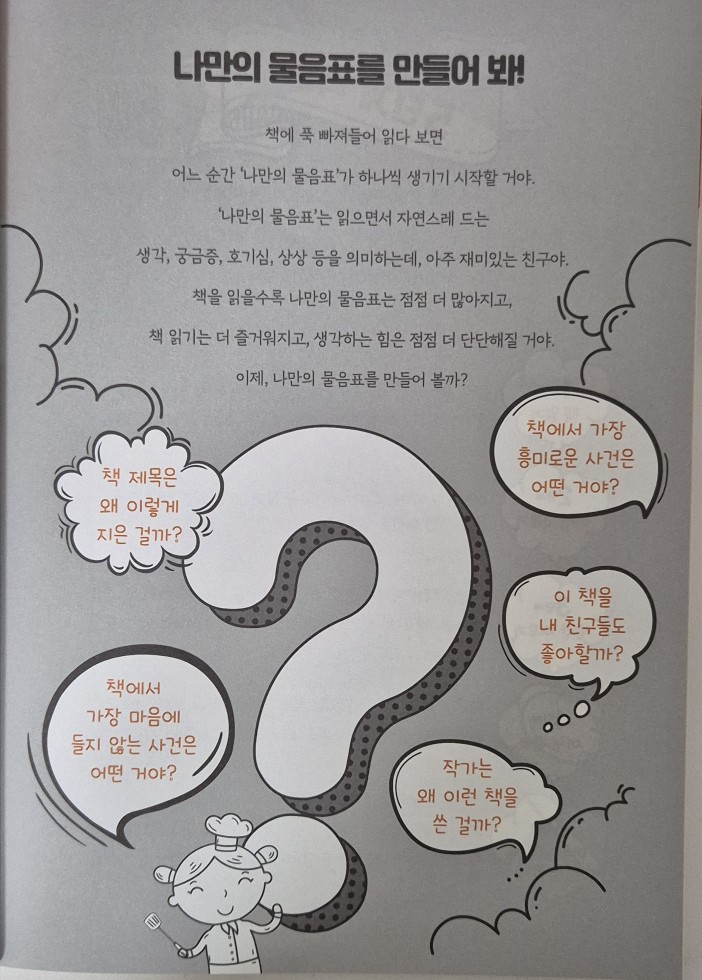 나만의 물음표를 만들어 봐!
책에 푹 빠져들어 읽다 보면
어느 순간 ‘나만의 물음표’가 하나씩 생기기 시작할 거야.
‘나만의 물음표’는 읽으면서 자연스레 드는
생각, 궁금증, 호기심, 상상 등을 의미하는데, 아주 재미있는 친구야.
책을 읽을수록 나만의 물음표는 점점 더 많아지고,
책 읽기는 더 즐거워지고, 생각하는 힘은 점점 더 단단해질 거야.
이제, 나만의 물음표를 만들어 볼까?
책 제목은
왜 이렇게
지은 걸까?
책에서 가장
흥미로운 사건은
어떤 거야?
이 책을
내 친구들도
좋아할까?
책에서
가장 마음에
들지 않는 사건은
어떤 거야?
작가는
왜 이런 책을
쓴 걸까?